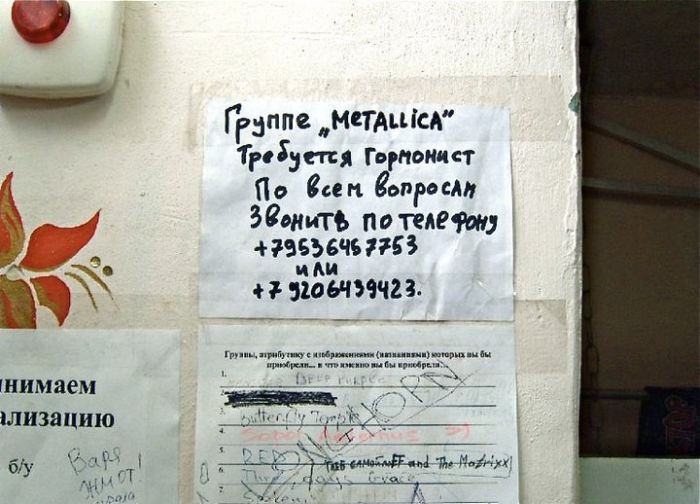 Группе „МеТАLLiCA”
Требуется Гормонист
По всем вопросам
Звонить по телефону
+79536457753
или
+79206439423.
Группы, атрибутику с изображениями (названиями) которых вы бы
приобрели... и что именно вы бы приобрели...
1. DEEP PURPLE
2.
3. Butterfly Temple
4. Sopor Aeternus
5. RED
ГЛЕБ САМОЙЛОFF and The Matrixx
6. Three days Grace
7.
KORN
инимаем
ализацию
б/у
Варя
ЖМОТ!